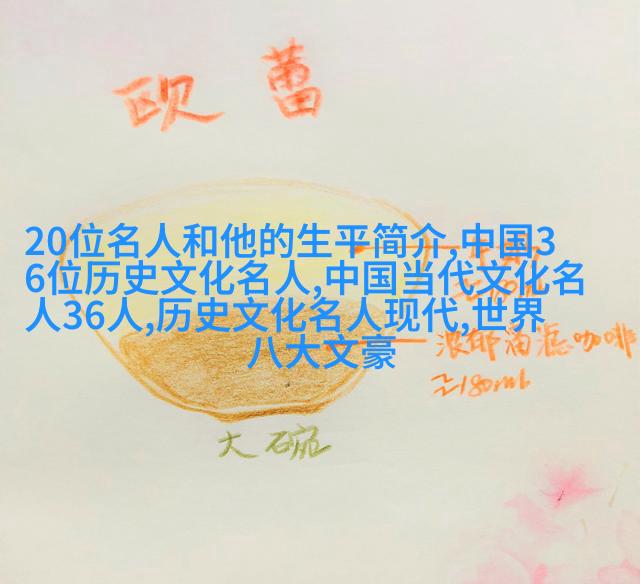 欧蕾
20位名人和他的生平简介,中国3
6位历史文化名人,中国当代文化名
人36人,历史文化名人现代,世界
八大文豪
浓郁滴滤咖啡
≥180ml
大碗